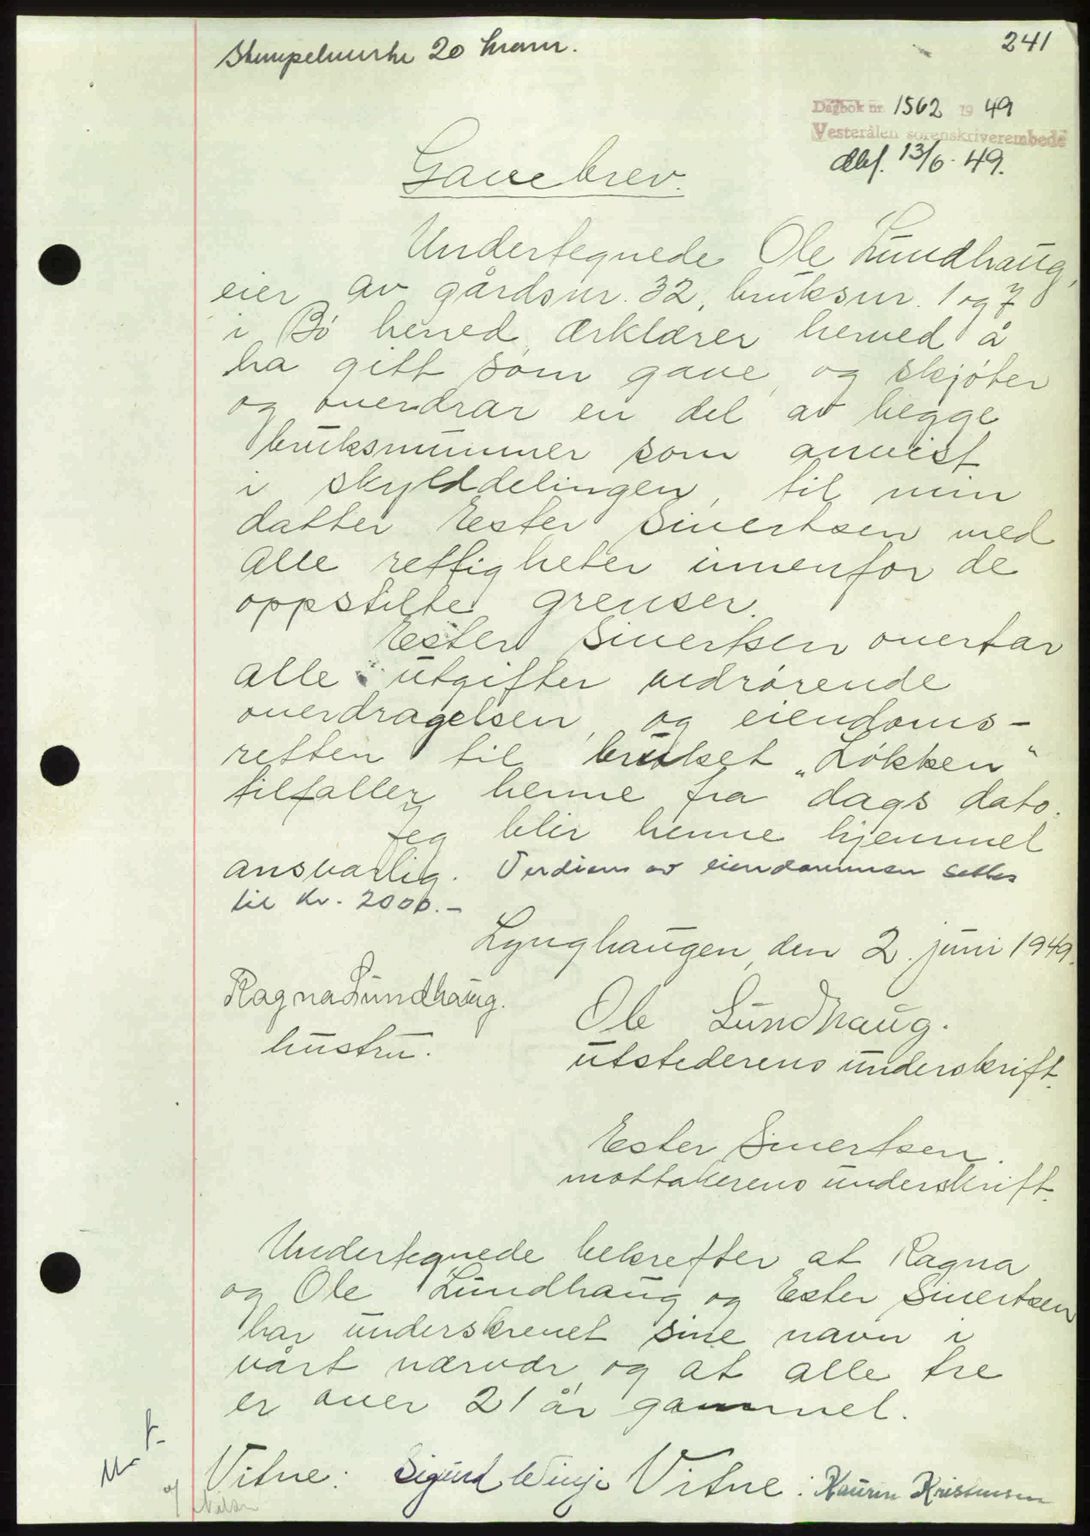 Stempelmerke 20 kroner.
241
Dagbok nr. 1562 19 49
Vesterålen sorenskriverembede
dbf. 13/6 - 49.
Gavebrev.
Undertegnede Ole Lundhaug,
eier av gårdsnr. 32, bruksnr. 1 og 7
i Bø herred, erklærer herved å
ha gitt som gave, og skjøter
og overdrar en del av begge
bruksnummer som anvist
i skylddelingen, til min
datter Ester Sivertsen med
alle rettigheter innenfor de
oppstilte grenser.
Ester Sivertsen overtar
alle utgifter vedrørende
overdragelsen, og eiendoms-
retten til bruket "Løkken"
tilfaller henne fra dags dato.
Jeg blir henne hjemmel
ansvarlig. Verdien av eiendommen settes
til kr. 2000.-
Lynghaugen, den 2. juni 1949.
Ragna Lundhaug.
hustru.
Ole Lundhaug.
utstederens underskrift.
Ester Sivertsen.
mottakerens underskrift.
Undertegnede bekrefter at Ragna
og Ole Lundhaug og Ester Sivertsen
har underskrevet sine navn i
vårt nærvær, og at alle tre
er over 21 år gammel.
Vitne: Sigurd Vitne: Kristensen